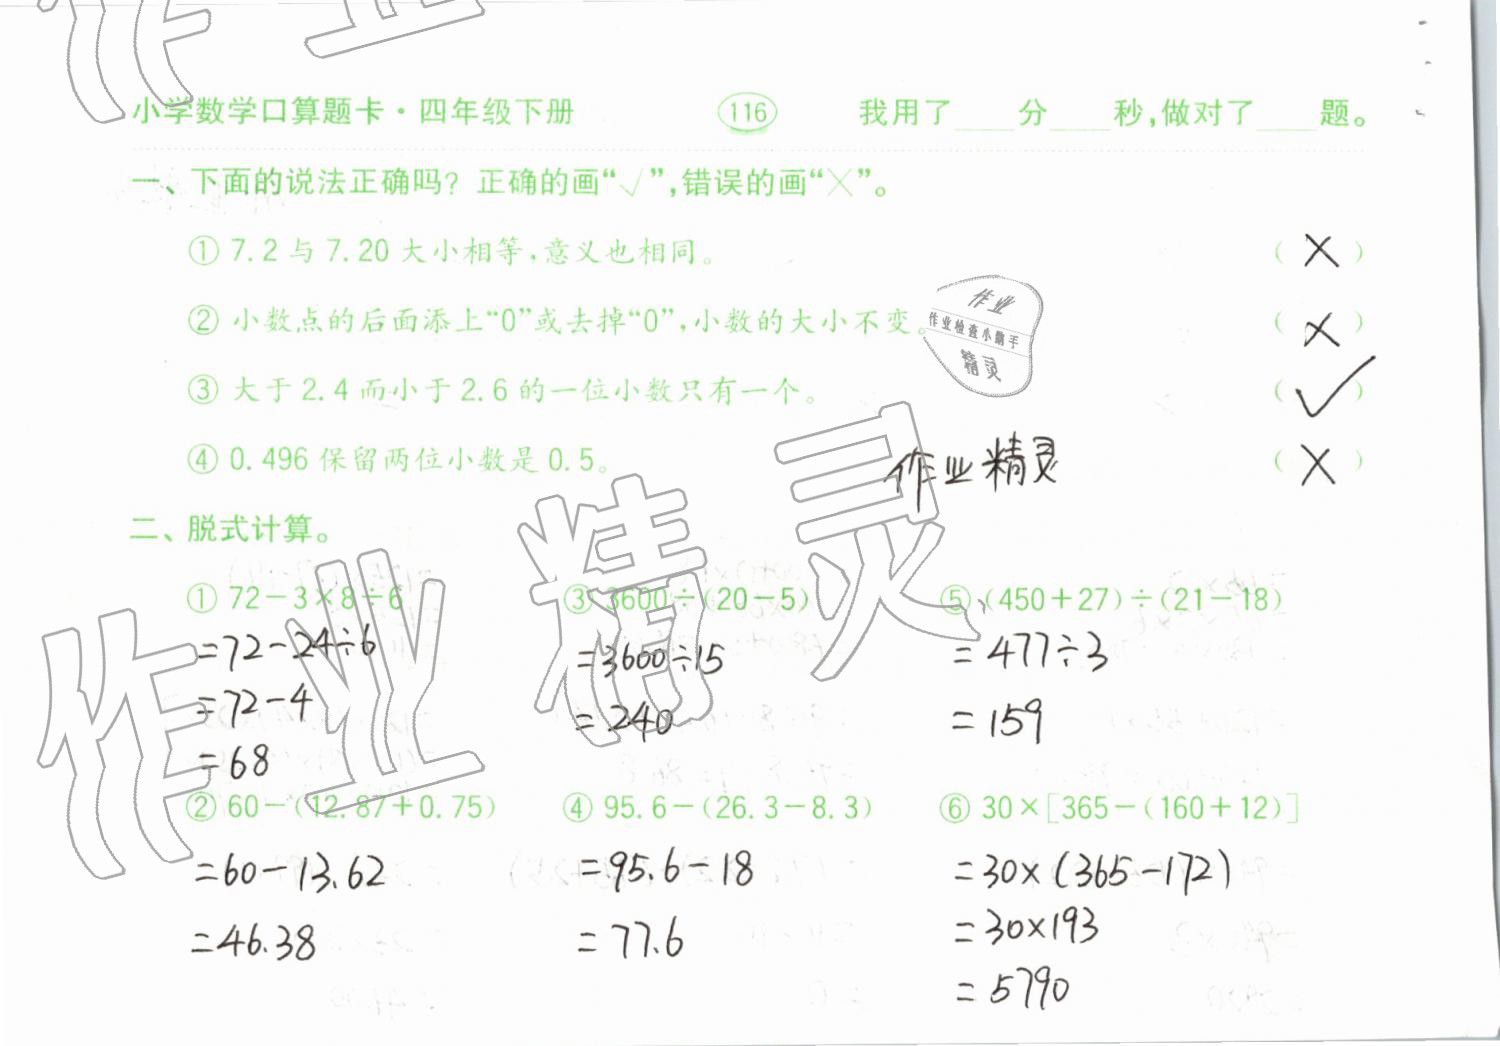 小学数学口算题卡·四年级下册 116 我用了____分____秒,做对了____题。
一、下面的说法正确吗？正确的画“√”,错误的画“×”。
① 7.2 与 7.20 大小相等,意义也相同。 ( × )
② 小数点的后面添上“0”或去掉“0”,小数的大小不变。 ( × )
作业
作业检查小助手
精灵
③ 大于 2.4 而小于 2.6 的一位小数只有一个。 ( √ )
④ 0.496 保留两位小数是 0.5。 ( × )
作业精灵
二、脱式计算。
① 72－3×8÷6
=72-24÷6
=72-4
=68
③ 3600÷(20－5)
=3600÷15
=240
⑤ (450＋27)÷(21－18)
=477÷3
=159
② 60－(12.87＋0.75)
=60-13.62
=46.38
④ 95.6－(26.3－8.3)
=95.6-18
=77.6
⑥ 30×[365－(160＋12)]
=30×(365-172)
=30×193
=5790
作业精灵
作业